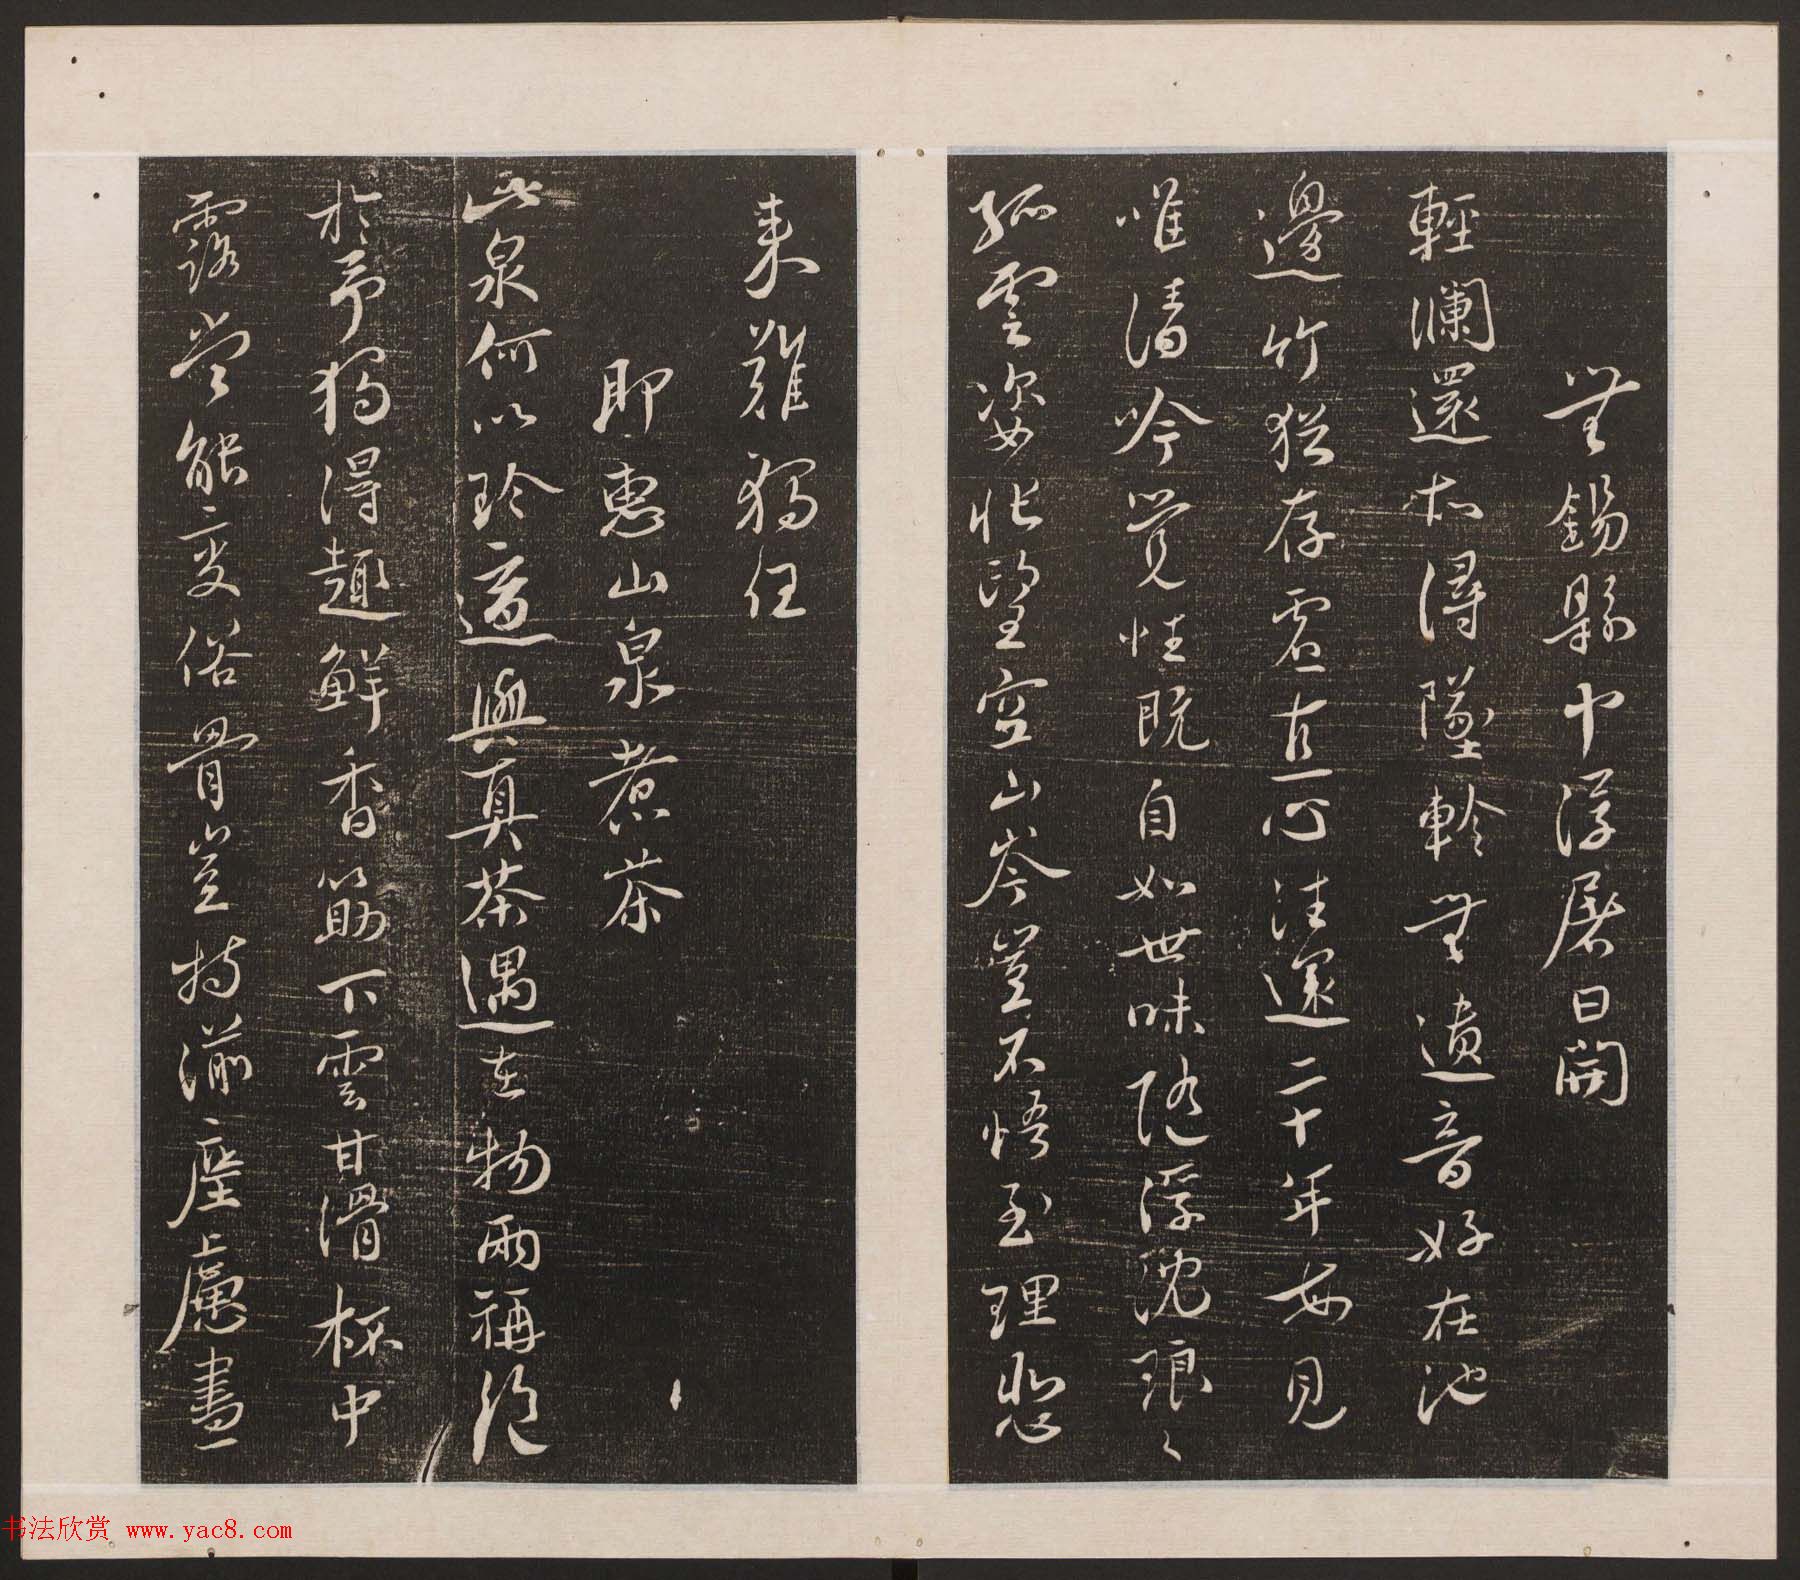 無錫縣弔浮屠日開
輕瀾還故潯墜軫無遺音好在池
邊竹猶存虛直心往還二十年每見
唯清吟覺性既自如世味隨浮沈琅々
孤雲姿悵望空山岑豈不悟至理悲
來難獨任
即惠山泉煮茶
此泉何以珍適與真茶遇在物兩稱絕
於予獨得趣鮮香筯下雲甘滑杯中
露當能變俗骨豈特湔塵慮晝
书法欣赏 www.yac8.com